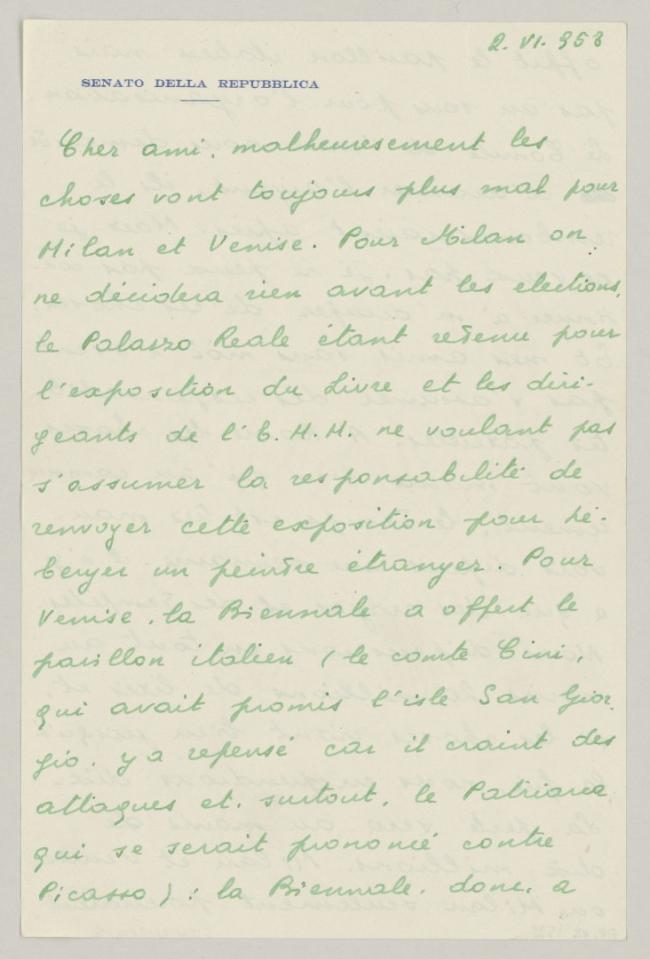 2. VI. 953
SENATO DELLA REPUBBLICA
Cher ami, malheuresement les
choses vont toujours plus mal pour
Milan et Venise. Pour Milan on
ne décidera rien avant les elections,
le Palazzo Reale étant retenu pour
l'exposition du Livre et les diri-
geants de l'E.M.M. ne voulant pas
s'assumer la responsabilité de
renvoyer cette exposition pour hé-
berger un peintre étranger. Pour
Venise, la Biennale a offert le
pavillon italien (le comte Cini,
qui avait promis l'isle San Gior
gio, y a repensé car il craint des
attaques et, surtout, le Patriarca
qui se serait prononcé contre
Picasso): la Biennale, donc, a